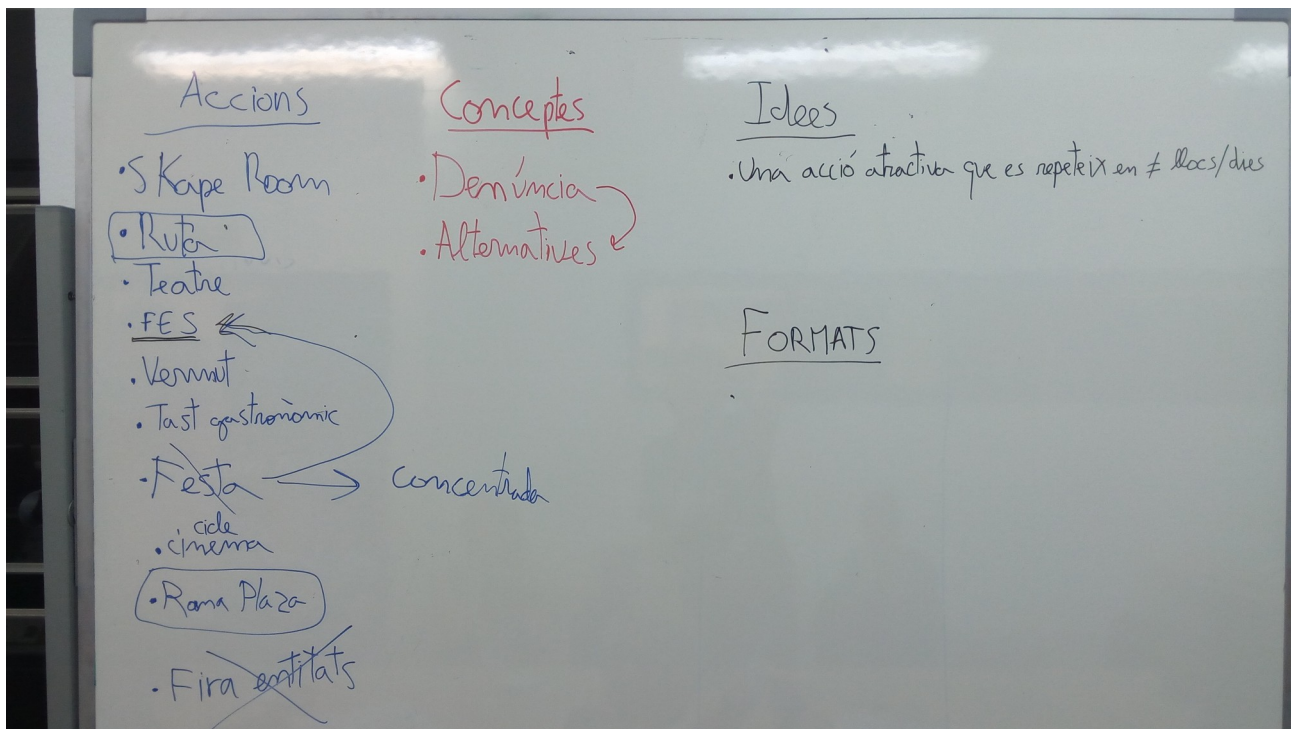 Accions
· SKape Room
· Ruta
· Teatre
· FES
· Vermut
· Tast gastronòmic
· Festa → concentrada
cicle
· cinema
· Rana Plaza
· Fira entitats
Conceptes
· Denúncia
· Alternatives
Idees
· Una acció atractiva que es repeteix en ≠ llocs/dies
FORMATS
·